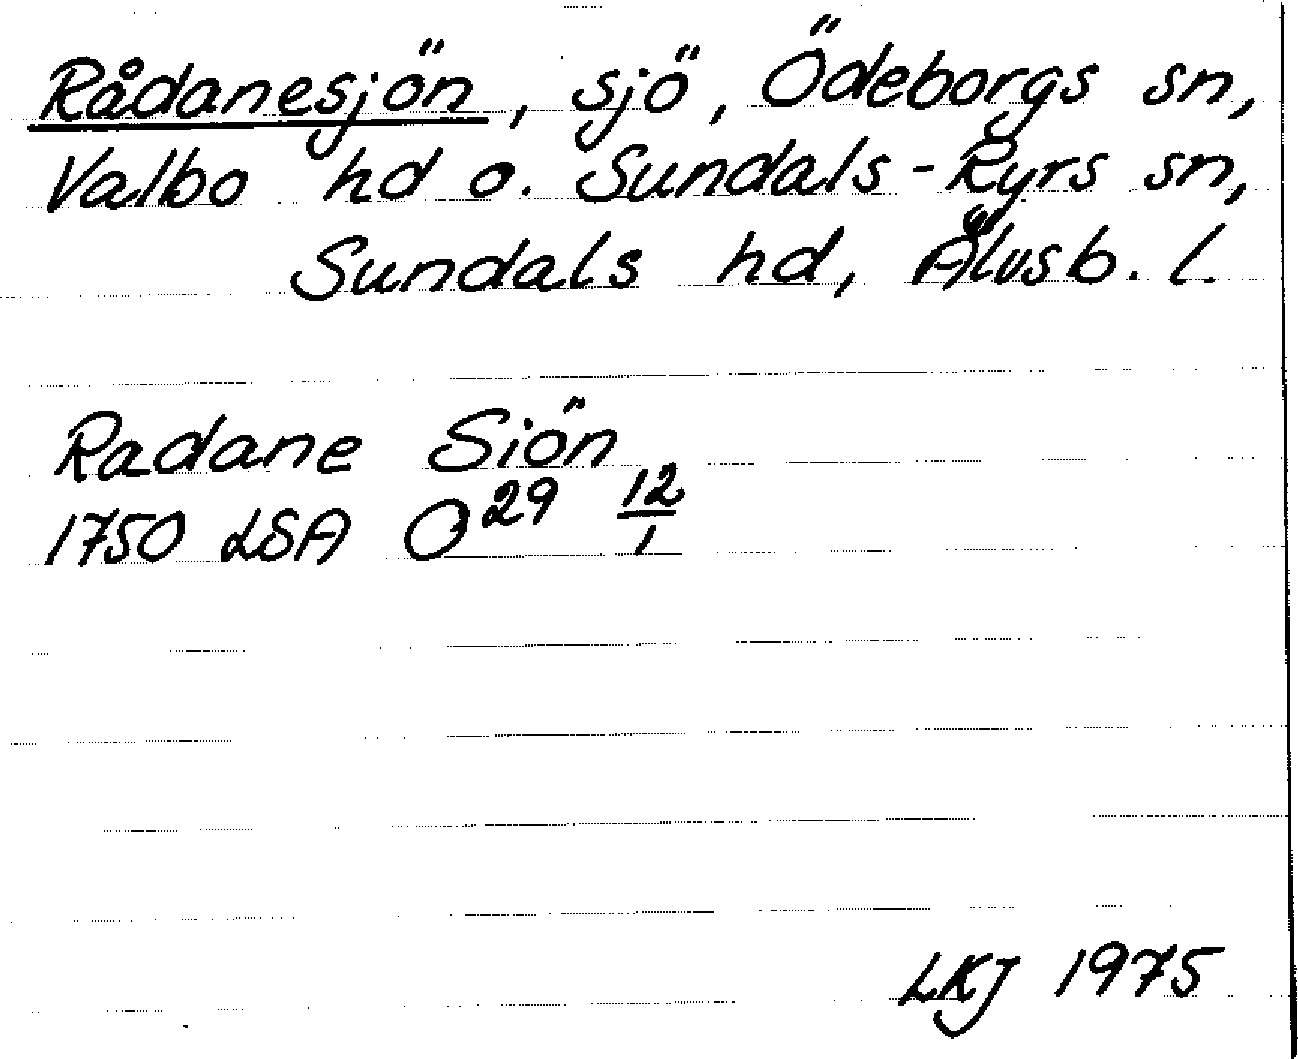 Rådanesjön, sjö, Ödeborgs sn,
Valbo hd o. Sundals-Ryrs sn,
Sundals hd, Älvsb. l.
Radane Siön
1750 LSA O29 12/1
LKJ 1975